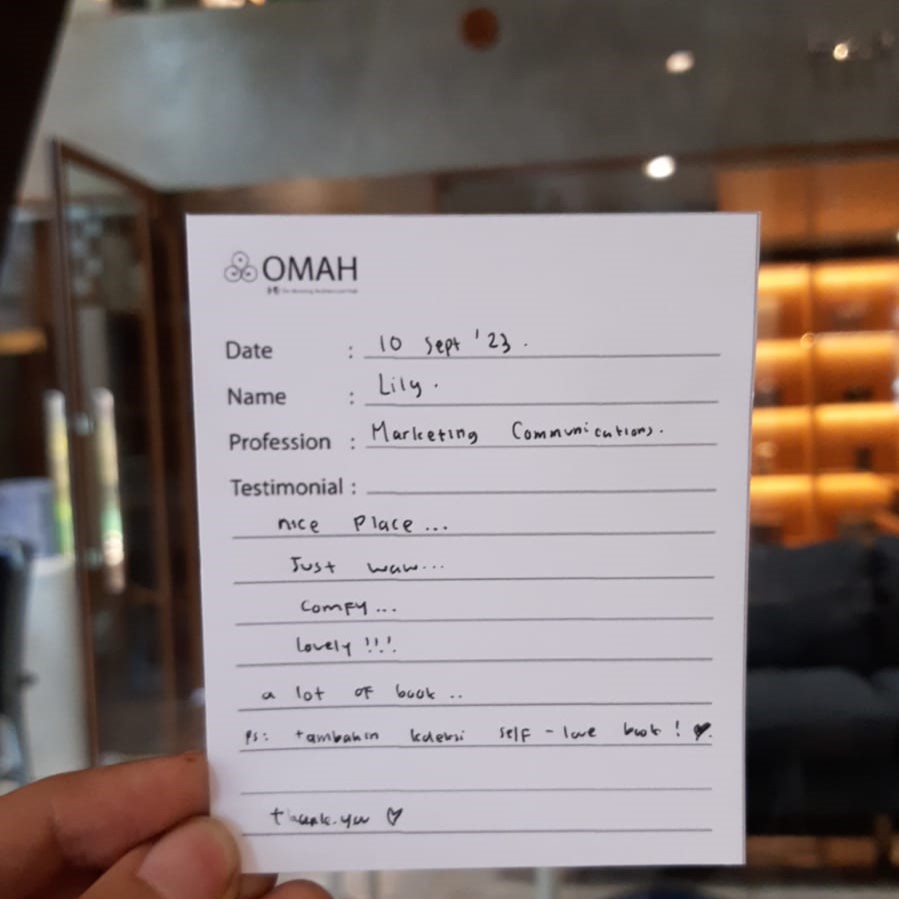 OMAH
Date : 10 Sept '23.
Name : Lily.
Profession : Marketing Communications.
Testimonial :
nice Place...
Just waw...
comfy...
lovely !!!
a lot of book ..
Ps: tambahin koleksi self - love book ! ♥.
thank you ♡